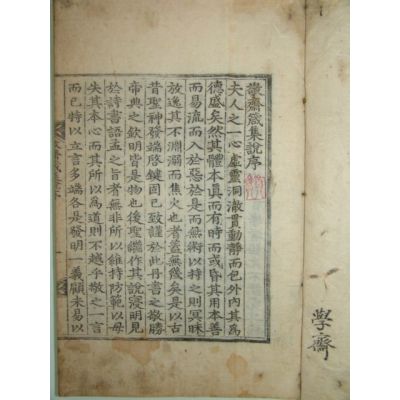 敬齋箴集說序
夫人之一心虛靈洞澈貫動靜而包外內其爲
德盛矣然其體本眞而有時而或昏其用本善
而易流而入於惡於是而無術以持之則冥昧
放逸其不淵溺而焦火也者蓋無幾矣是以古
昔聖神發端啓鍵固已致謹於此丹書之敬勝
帝典之欽明皆是物也後聖繼作其說寖明見
於詩書語孟之旨者無非所以維持防範以毋
失其本心而其所以爲道則不越乎敬之一言
而已特以立言多端各是發明一義顧未易以
學齋